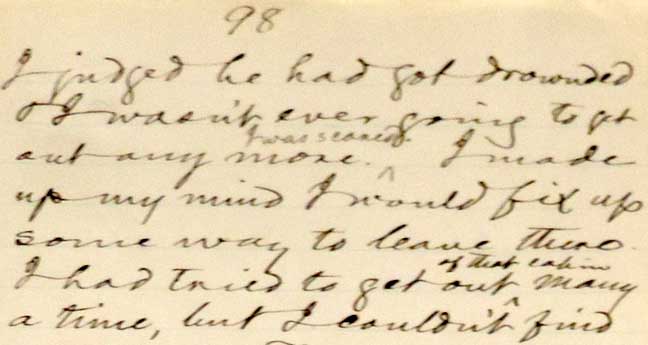 98
I judged he had got drownded
& I wasn't ever going to get
out any more. I was scared. I made
up my mind I would fix up
some way to leave there.
I had tried to get out of that cabin many
a time, but I couldn't find